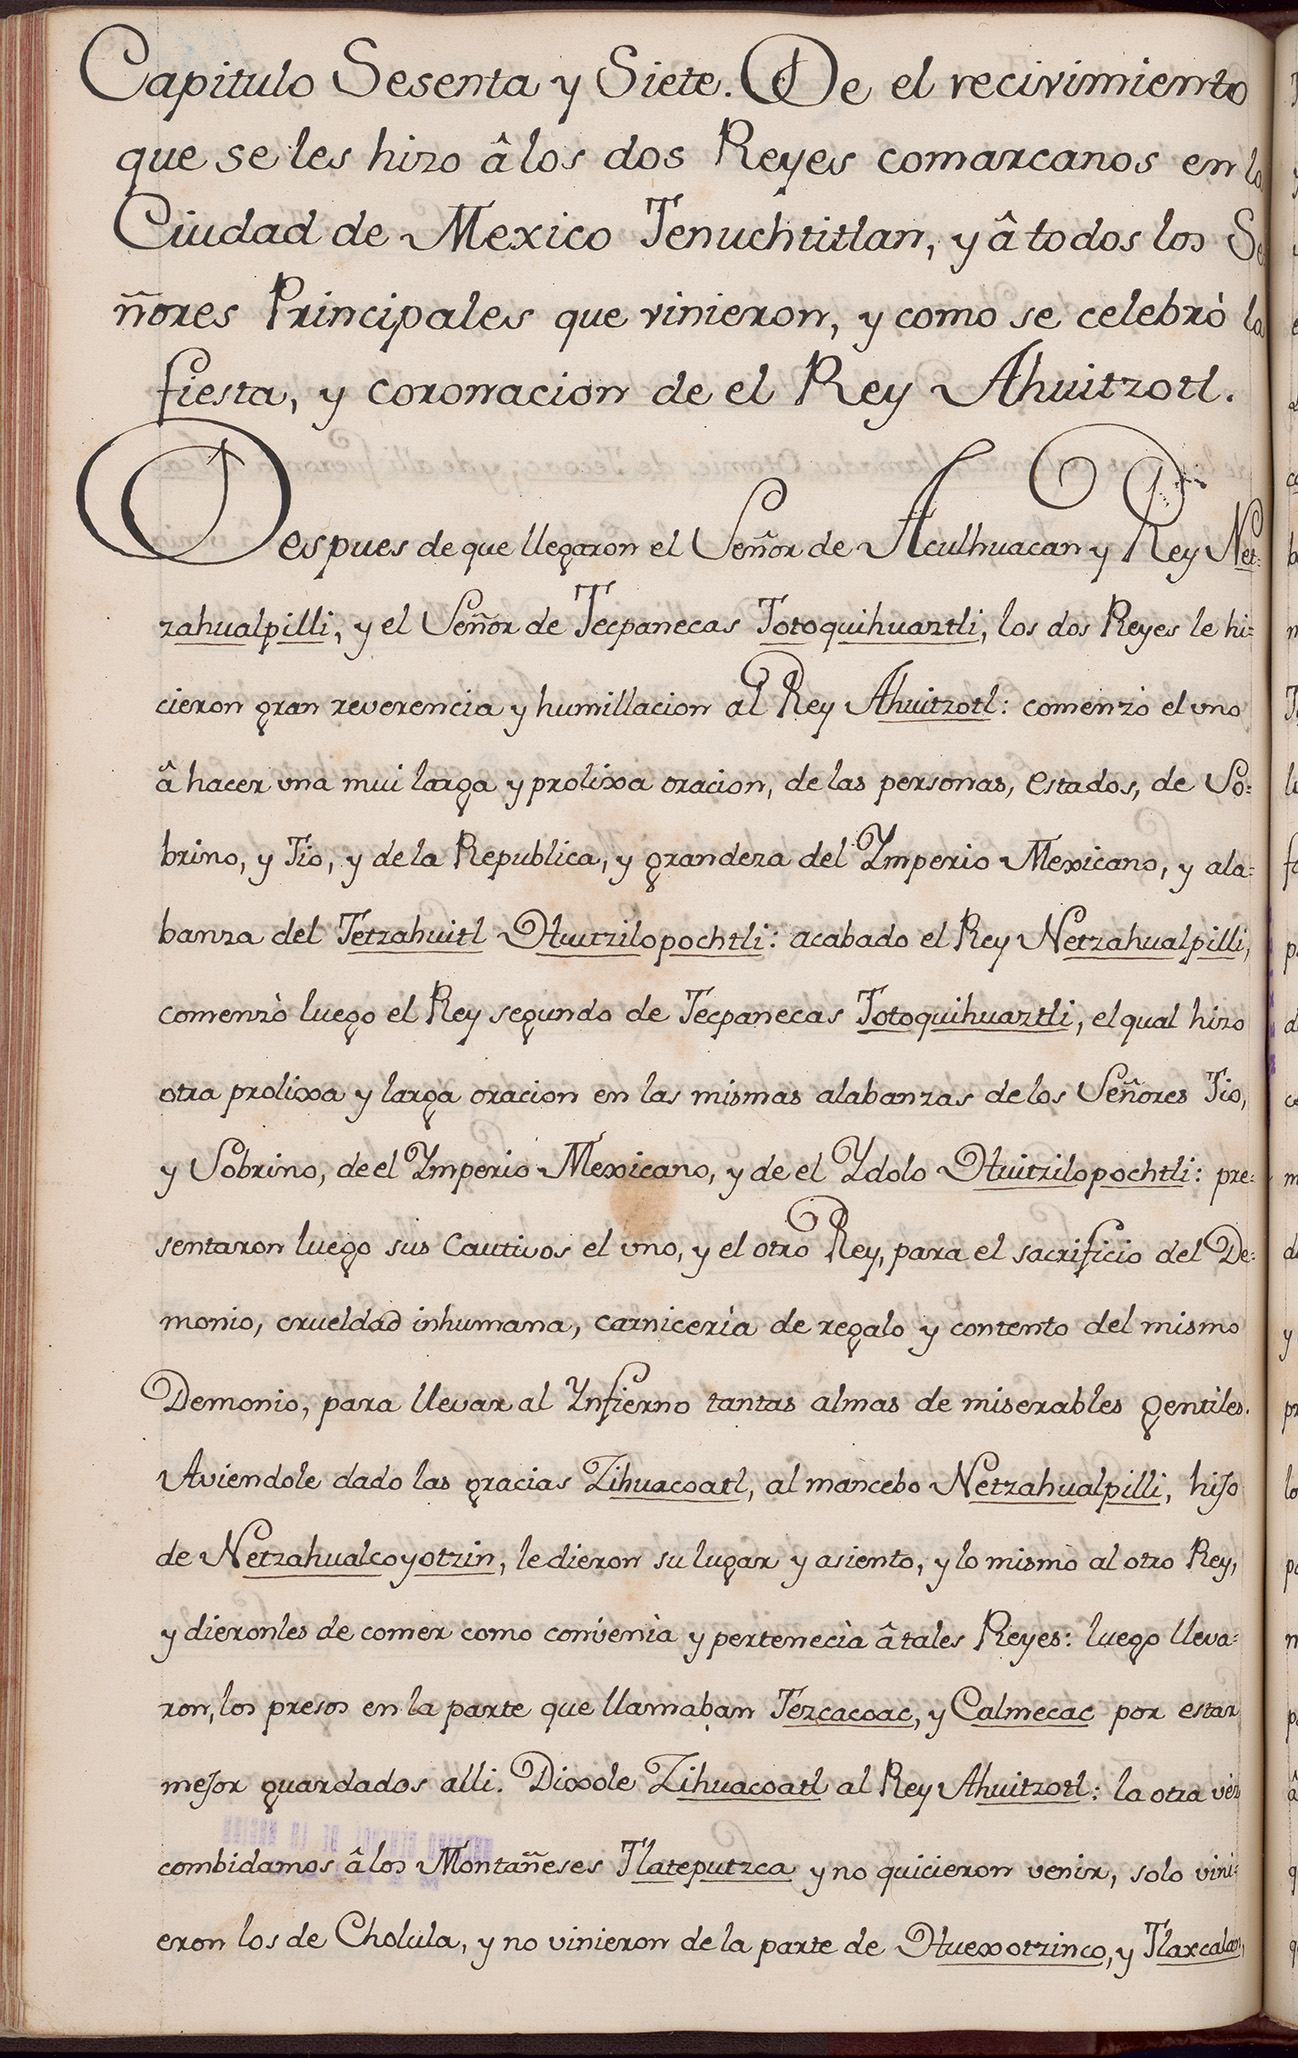 Capitulo Sesenta y Siete. De el recivimiento
que se les hizo â los dos Reyes comarcanos en la
Ciudad de Mexico Tenuchtitlan, y â todos los Se
ñores Principales que vinieron, y como se celebrò la
fiesta, y coronacion de el Rey Ahuitzotl.
Despues de que llegaron el Señor de Aculhuacan y Rey Net=
zahualpilli, y el Señor de Tecpanecas Totoquihuaztli, los dos Reyes le hi=
cieron gran reverencia y humillacion al Rey Ahuitzotl: comenzò el uno
â hacer una mui larga y prolixa oracion, de las personas, estados, de So=
brino, y Tio, y de la Republica, y grandeza del Ymperio Mexicano, y ala=
banza del Tetzahuitl Huitzilopochtli: acabado el Rey Netzahualpilli,
comenzò luego el Rey segundo de Tecpanecas Totoquihuaztli, el qual hizo
otra prolixa y larga oracion en las mismas alabanzas de los Señores Tio,
y Sobrino, de el Ymperio Mexicano, y de el Ydolo Huitzilopochtli: pre=
sentaron luego sus Cautivos el uno, y el otro Rey, para el sacrificio del De=
monio, crueldad inhumana, carnicerìa de regalo y contento del mismo
Demonio, para llevar al Ynfierno tantas almas de miserables gentiles.
Aviendole dado las gracias Zihuacoatl, al mancebo Netzahualpilli, hijo
de Netzahualcoyotzin, le dieron su lugar y asiento, y lo mismo al otro Rey,
y dieronles de comer como convenìa y pertenecìa â tales Reyes: luego lleva=
ron, los presos en la parte que llamaban Tezcacoac, y Calmecac por estar
mejor guardados alli. Dixole Zihuacoatl al Rey Ahuitzotl: la otra vez
combidamos â los Montañeses Tlateputzca y no quicieron venir, solo vini=
eron los de Cholula, y no vinieron de la parte de Huexotzinco, y Tlaxcalan,